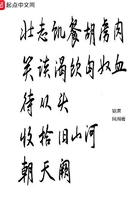 起点中文网
壮志饥餐胡虏肉
笑谈渴饮匈奴血
待从头
收拾旧山河
朝天阙